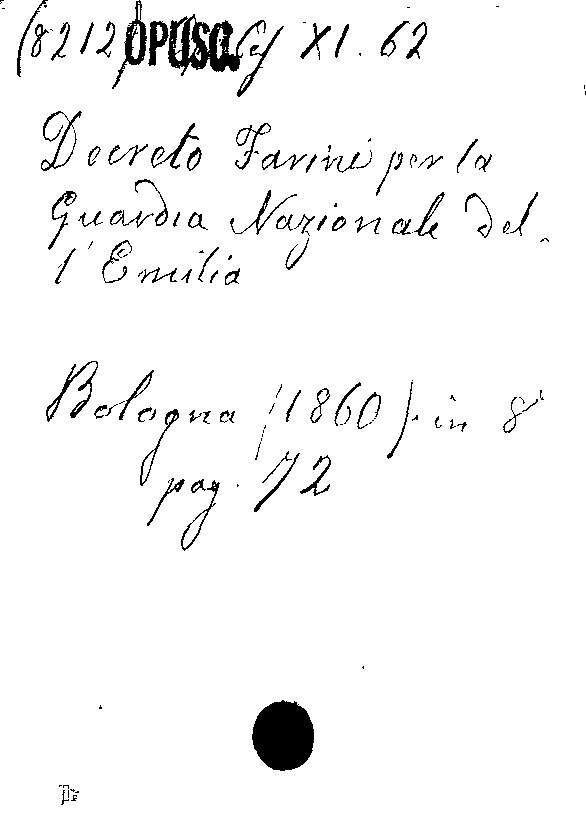 (8212) OPUSC. XI. 62
Decreto Farini per la
Guardia Nazionale del-
l'Emilia
Bologna (1860). in 8°
pag. 72